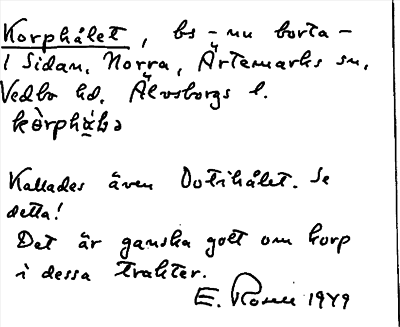 Korphålet, bs - nu borta -
i Sidan, Norra, Ärtemarks sn,
Vedbo hd, Älvsborgs l.
Kallades även Dotihålet. Se
detta!
Det är ganska gott om korp
i dessa trakter.
E. 1949